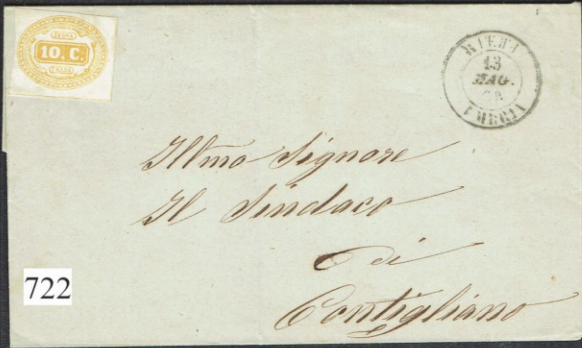 10. C.
RIETI
13
MAG.
UMBRIA
Illmo Signore
Il Sindaco
di
Contigliano
722